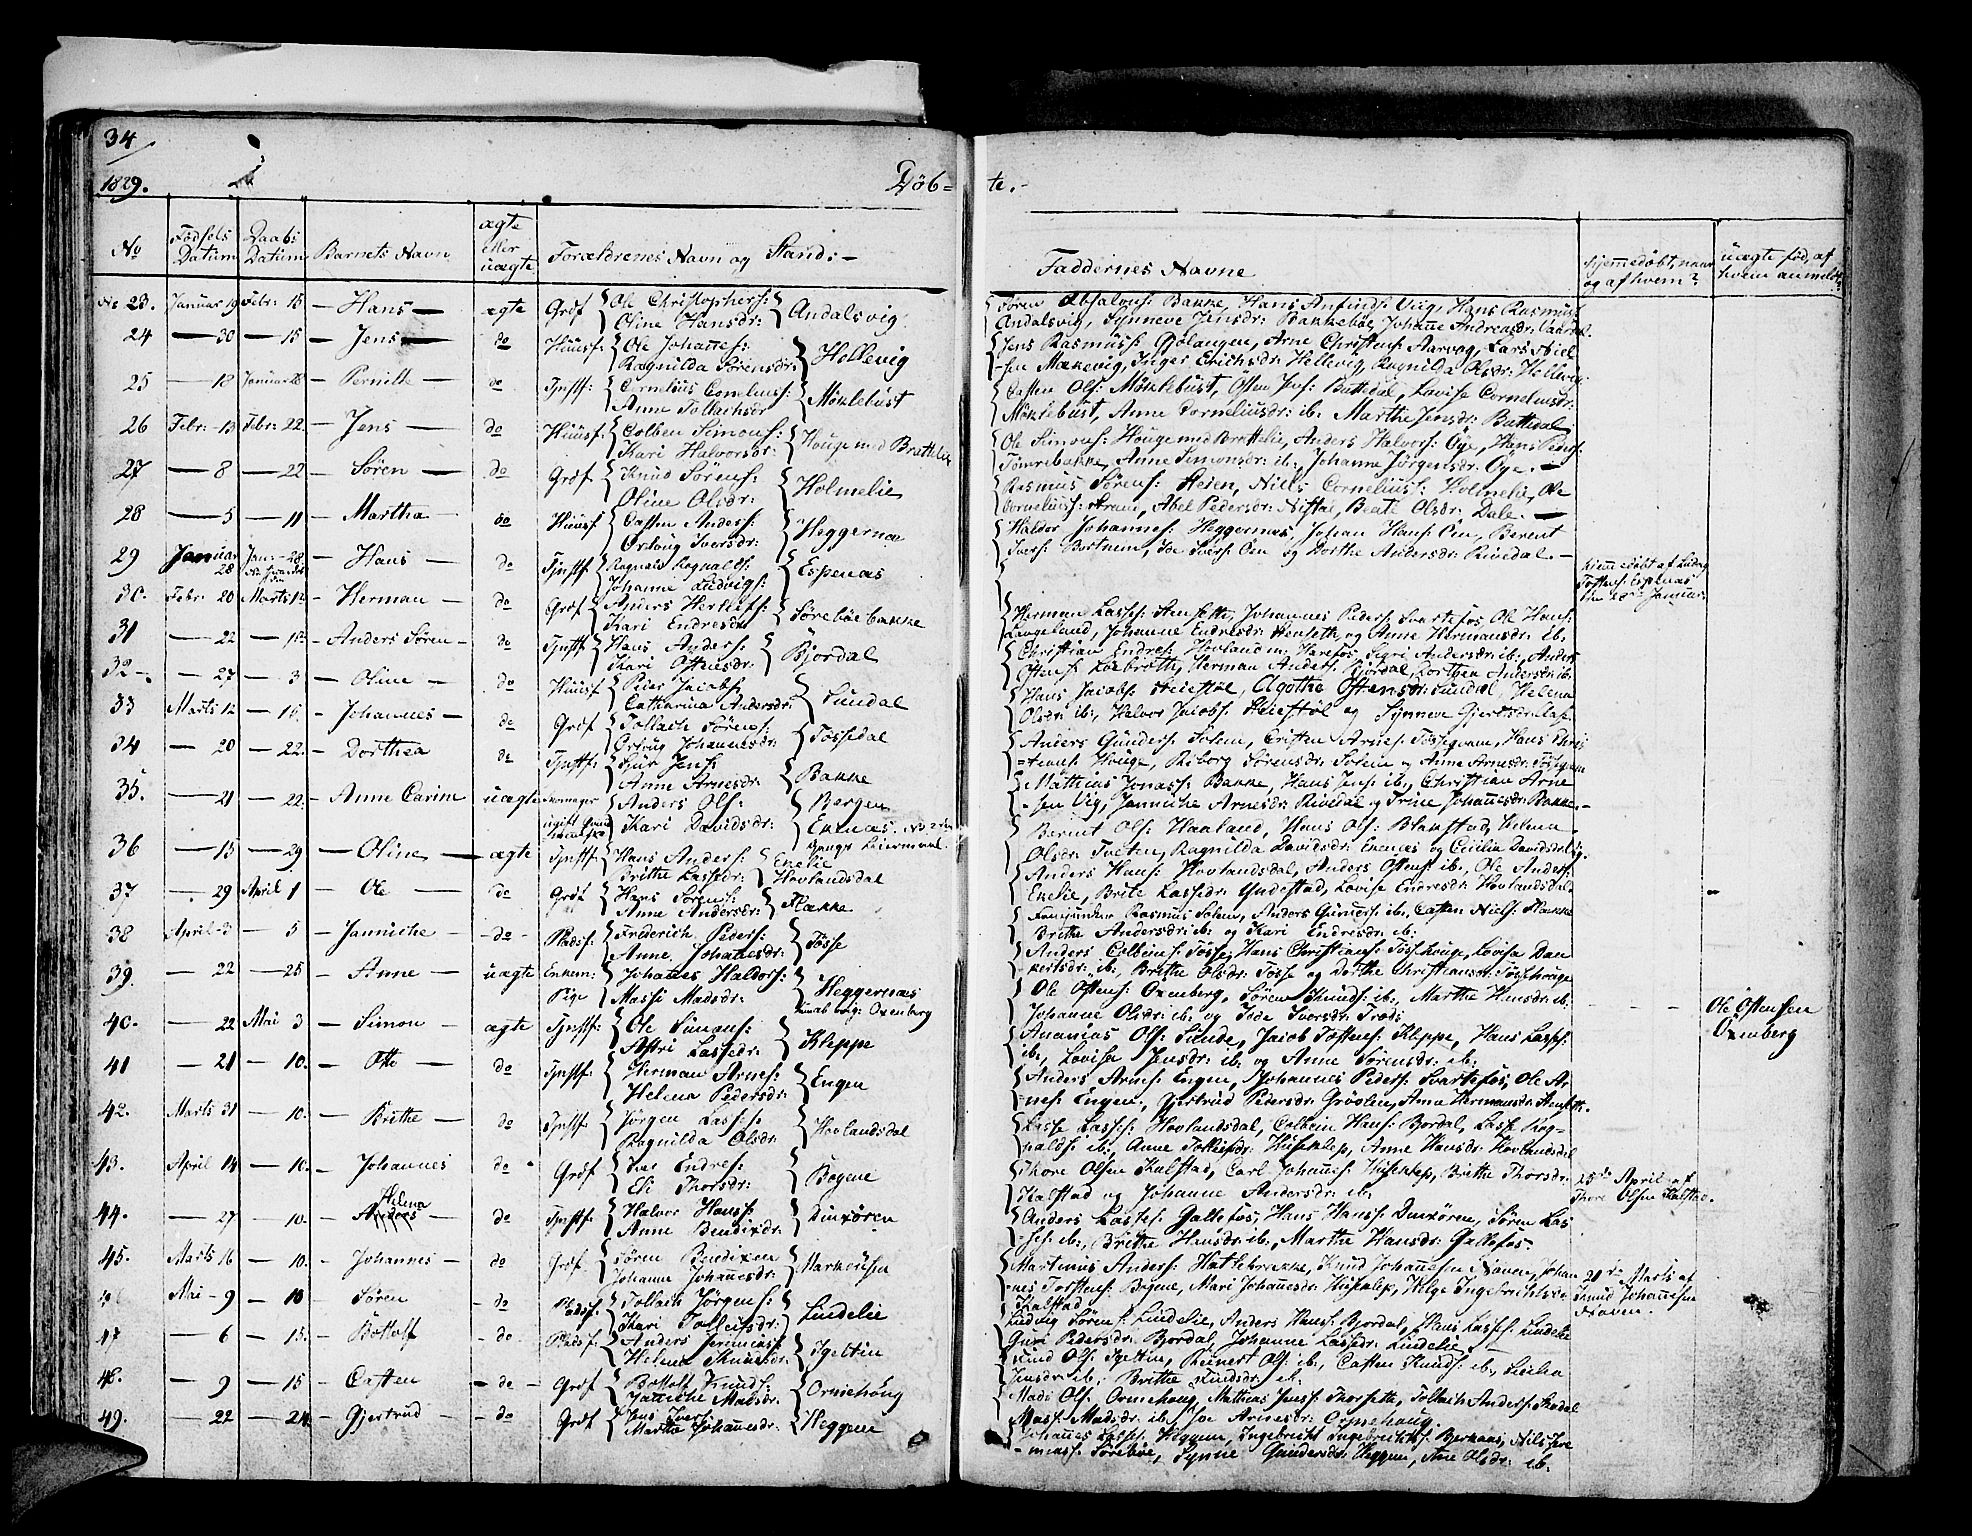 34
1829.
Døb=
te.-
No
Fødsels Datum
Daabs Datum
Barnets Navn
ægte eller uægte
Forældrenes Navn og Stand:-
Faddernes Navne
hjemmedøbt, naar og af hvem?
uægte fød, af hvem anmeldt?
No 23. Januar 19 Febr: 15 - Hans - ægte Grdf Ole Christophers: Oline Hansdr: Andalsvig
Søren Absalons: Bakke, Hans Anfinds: Viig, Hans Rasmuss:
Andalsvig, Synneve Jensdr: Bakkebøe, Johanne Andreasdr:
24 - 30 - 15 - Jens - do Huusf: Ole Johannes: Ragnilda Sørensdr: Hellevig
Jens Rasmuss: Gjølangen, Arne Christens: Aarvog, Lars Niel
-sen Mækevig, Inger Erichsdr: Hellevig, Ragnilda Olsdr: Hellevig
25 - 18 Januar - Pernille - do Tjnstf: Cornelius Corneliuss: Anne Tollachsdr Møklebust
Casten Ols: Møklebust, Often Jens: Battedal, Lovise Corneliusdr:
Møklebust, Anne Corneliusdr: ib: Marthe Jensdr: Battedal
26 Febr: 13 Febr: 22 - Jens - do Huusf: Colben Simons: Kari Halvorsdr: Houge med Brattelie
Ole Simons: Houge med Brattelie, Anders Halvors: Øye, Hans Peders:
Tømrebakke, Anne Simonsdr: ib:, Johanne Jørgensdr: Øye.-
27 - 8 - 22 - Søren - do Grdf Knud Sørens: Oline Olsdr: Holmelie
Rasmus Sørens: Heien, Niels Corneliuss: Holmelie, Ole
Corneliuss: , Abel Pedersdr: Niftal, Beate Olsdr: Dale.-
28 - 5 - 11 - Martha - do Huusf Casten Anders: Ordoug Iversdr: Heggernæs
Haldor Johannes: Heggernæs, Johan Hans: Øen, Berent
Ivers: Bortnem, Ide Ivers: Øen og Dorthe Andersdr: Rivedal.-
29 Januar 28 Jan: 28 - Hans - do Tjnstf: Ragnald Ragnalds: Johanne Ludvigs: Espenæs
hiemmedøbt af Ludvig
Tostens: Espenæs
den 28de Januar
30. Febr: 20 Marts 1 - Herman - do Grdf Anders Herleifs: Kari Endresdr Sørebøe bakke
Herman Lasses: Stensette, Johannes Peders: Svartefos, Ole Hans:
Langeland, Johanne Endresdr: Stensette, og Anne Hermansdr: ib.
31 - 22 - 1 - Anders Søren - do Tjnstf Hans Anders: Kari Oftensdr: Bjordal
Christian Endres: Hovland m: Harefos, Sigri Andersdr: ib:, Anders
Oftens: Laxbroth, Herman Anders: Bjordal, Dorthea Andersdr: ib.
32- - 27 - 3 - Oline - do Huusf Peder Jacobs: Catharina Andersdr: Sundal
Hans Jacobs: Heiestøl, Agothe Oftensdr: Sundal, Helena
Olsdr: ib:, Helvor Jacobs: Heiestøl og Synneve Gjertsdr:
33 Marts 12 - 15. - Johannes - do Grdf Tollach Sørens: Johannesdr: Tøssedal
Anders Gunders: Solem, Cristen Arnes: , Hans Chris
-tens: Houge, Riborg Sørensdr: Solem og Anne Arnesdr:
34 - 20 - 22. - Dorthea do Tjnstf: Sjur Jens: Anne Arnesdr: Bakke
Matthias Jonass: Bakke, Hans Jens: ib:, Christian Arne
-sen Vig, Jannicke Arnesdr: Rivedal og Trine Johannesdr: Bakke.-
35. - 21 - 22. - Anne Carine uægte Anders Ols: Kari Davidsdr: Bergen Exenæs.
Bernt Ols: Haaland, Hans Ols: Blakstad, Helena
Olsdr: Tveten, Ragnilda Davidsdr: Exenæs og Cicilia Davidsdr:
36 - 15 - 29. - Oline - ægte Tjnstf: Hans Anders: Brithe Lassedr: Enelie Hovlandsdal
Anders Hans: Hovlandsdal, Anders Oftens: ib:, Ole Anders:
Enelie, Brite Lassedr: Yndestad, Lovise Endresdr: Hovlandsdal
37 - 29 April 1 - Ole - do Grdf Hans Sørens: Anne Andersdr: Flække
Rasmus Solem, Anders Gunders: ib:, Casten Niels: Flække
Brithe Andersdr: ib: og Kari Endresdr: ib:
38 April 3 - 5 - Jannicke - do - Pladsf: Frederich Peders: Anne Johannesdr: Tøsse
Anders Colbeins: Tøsse, Hans Christians: Tøssehouge, Lovisa Dan
kertsdr: ib:, Brithe Olsdr: Tøsse og Dorthe Christiansdr: Tøssehouge
39. - 22 - 25 - Anne - uægte Enkem: Pige Johannes Haldors: Massi Madsdr: Heggernæs Oxenberg
Ole Oftens: Oxenberg, Søren Knuds: ib:, Marthe Hansdr: ib:
Johanne Olsdr: ib: og Ide Iversdr:
- - Ole Oftensen
Oxenberg
40. - 22 Mai 3 - Simon - ægte Tjnstf: Ole Simons: Astri Lassedr: Kleppe
Ananias Ols: Sunde, Jacob Tostens: Kleppe, Hans Lasses:
ib:, Lovise Jensdr: ib: og Anne Sørensdr: ib:
41 - 21 - 10. - Otte - do Tjnstf: Herman Arnes: Helena Pedersdr: Engen
Anders Arnes: Engen, Johannes Peders: Svartefos, Ole Ar
-nes: Engen, Gjertrud Pedersdr: , Anne Hermansdr: Stensette.
42. Marts 31 - 10. - Brithe - do Tjnstf: Jørgen Lasses: Ragnilda Olsdr: Hovlandsdal
Lasse Lasses: Hovlandsdal, Colbein Hans: Bjordal, Lasse Rog-
nalds: ib:, Anne Tolleifsdr: Huseklep, Anne Hansdr: Hovlandsdal
43. April 14 - 10. - Johannes do Grdf: Iver Endres: Eli Thorsdr: Bøgene
Thore Olsen Kalstad, Carl Johannes: Huseklep, Brithe Thorsdr:
Kalstad og Johanne Andersdr: ib:
15de April af
Thore Olsen Kalstad.
44. - 27 - 10. - Anders Helena - do Tjnstf: Halvor Hans: Anne Bendixdr:
Anders Lasses: Gallefos, Hans Hans: , Søren Las
ses: ib:, Brithe Hansdr: ib:, Marthe Hansdr: Gallefos.
45. Marts 16 - 10. - Johannes - do Grdf: Søren Bendixen Johanne Johannesdr:
Martinus Anders: Hatlebrække, Knud Johannesen , Johan
nes Torstens: , Mari Johannesdr: Huseklep, Helge Ingebrichtsdr:
Kalstad
21de Marts af
Knud Johannesen
46 Mai - 9 - 10 - Søren - do Pladsf: Tollach Jørgens: Kari Tolleifsdr: Lindelie
Ludvig Sørens: Lindelie, Anders Hans: Bjordal, Hans Lasses: Lindelie
Guri Pedersdr: Bjordal, Johanne Lassedr: Lindelie.-
47 - 6 - 15. - Bottolf - do. Pladsf: Anders Jeremias: Helena Knudsdr: Igeltin
Knud Ols: Igeltin, Reinert Ols: ib:, Casten Knuds: ib:, Cicilia
Jensdr: ib: Brithe Knudsdr: ib.
48. - 9 - 15 - Casten - do - Grdf Bottolf Knuds: Jannicke Madsdr: Ormehøug
Mads Ols: Ormehoug, Mathias Jens: Thorsette, Tollach Anders: Skadal
Mass: Madsdr: ib: Ide Arnesdr: Ormehoug.
49. - 22 - 24. - Gjertrud - do Grdf: Jens Ivers: Marthe Johannesdr: Heggene
Johannes Lasses: Heggene, Ingebricht Ingebrichts: , Nils Jere
-mias: Sørebøe, Synne Gundersdr: Heggene, Ane Olsdr: ib.